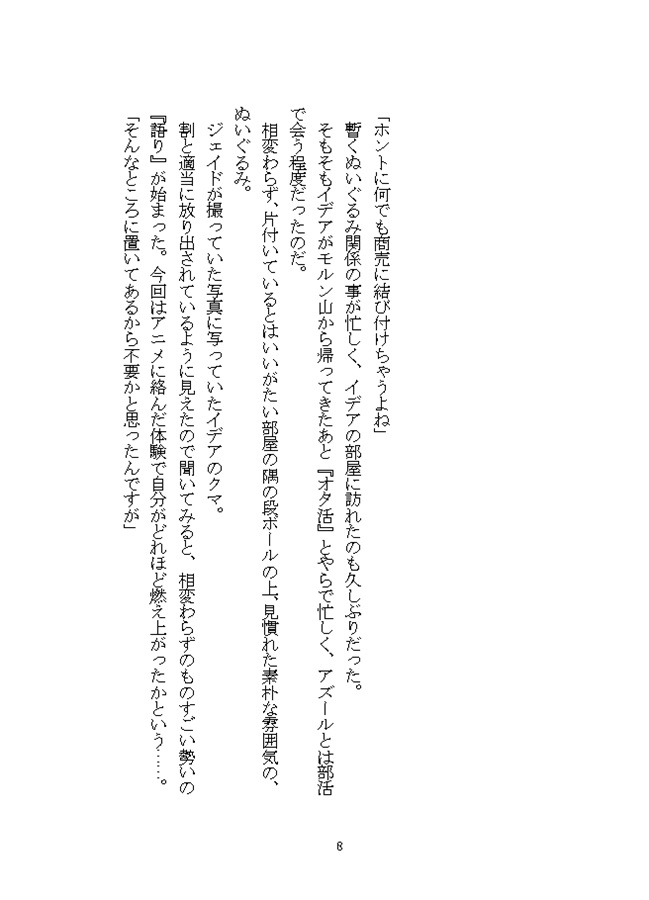 「ホントに何でも商売に結び付けちゃうよね」
暫くぬいぐるみ関係の事が忙しく、イデアの部屋に訪れたのも久しぶりだった。
そもそもイデアがモルン山から帰ってきたあと『オタ活』とやらで忙しく、アズールとは部活
で会う程度だったのだ。
相変わらず、片付いているとはいいがたい部屋の隅の段ボールの上、見慣れた素朴な雰囲気の、
ぬいぐるみ。
ジェイドが撮っていた写真に写っていたイデアのクマ。
割と適当に放り出されているように見えたので聞いてみると、相変わらずのものすごい勢いの
『語り』が始まった。今回はアニメに絡んだ体験で自分がどれほど燃え上がったかという……。
「そんなところに置いてあるから不要かと思ったんですが」
8